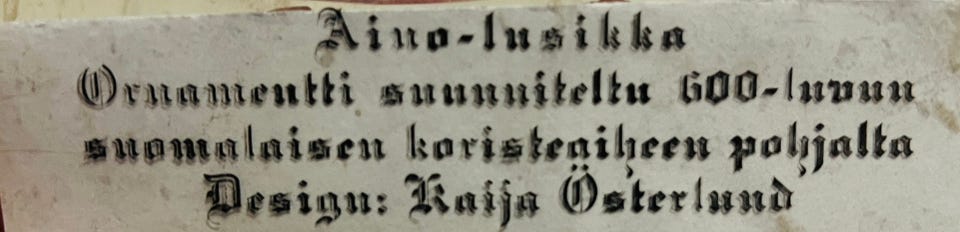 Aino-lusikka
Ornamentti suunniteltu 600-luvun
suomalaisen koristeaiheen pohjalta
Design: Kaija Österlund